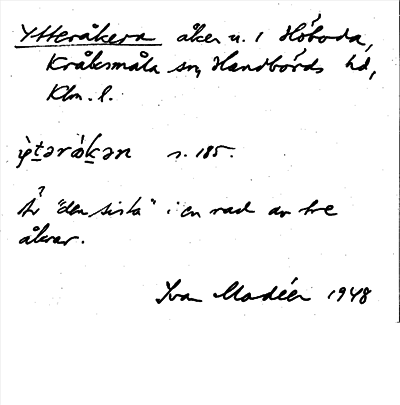 Ytteråkern åker n. i Höboda,
Kråksmåla sn, Handbörds hd,
Klm. l.
s. 185.
Är "den sista" i en rad av tre
åkrar.
Yva Modéer 1948